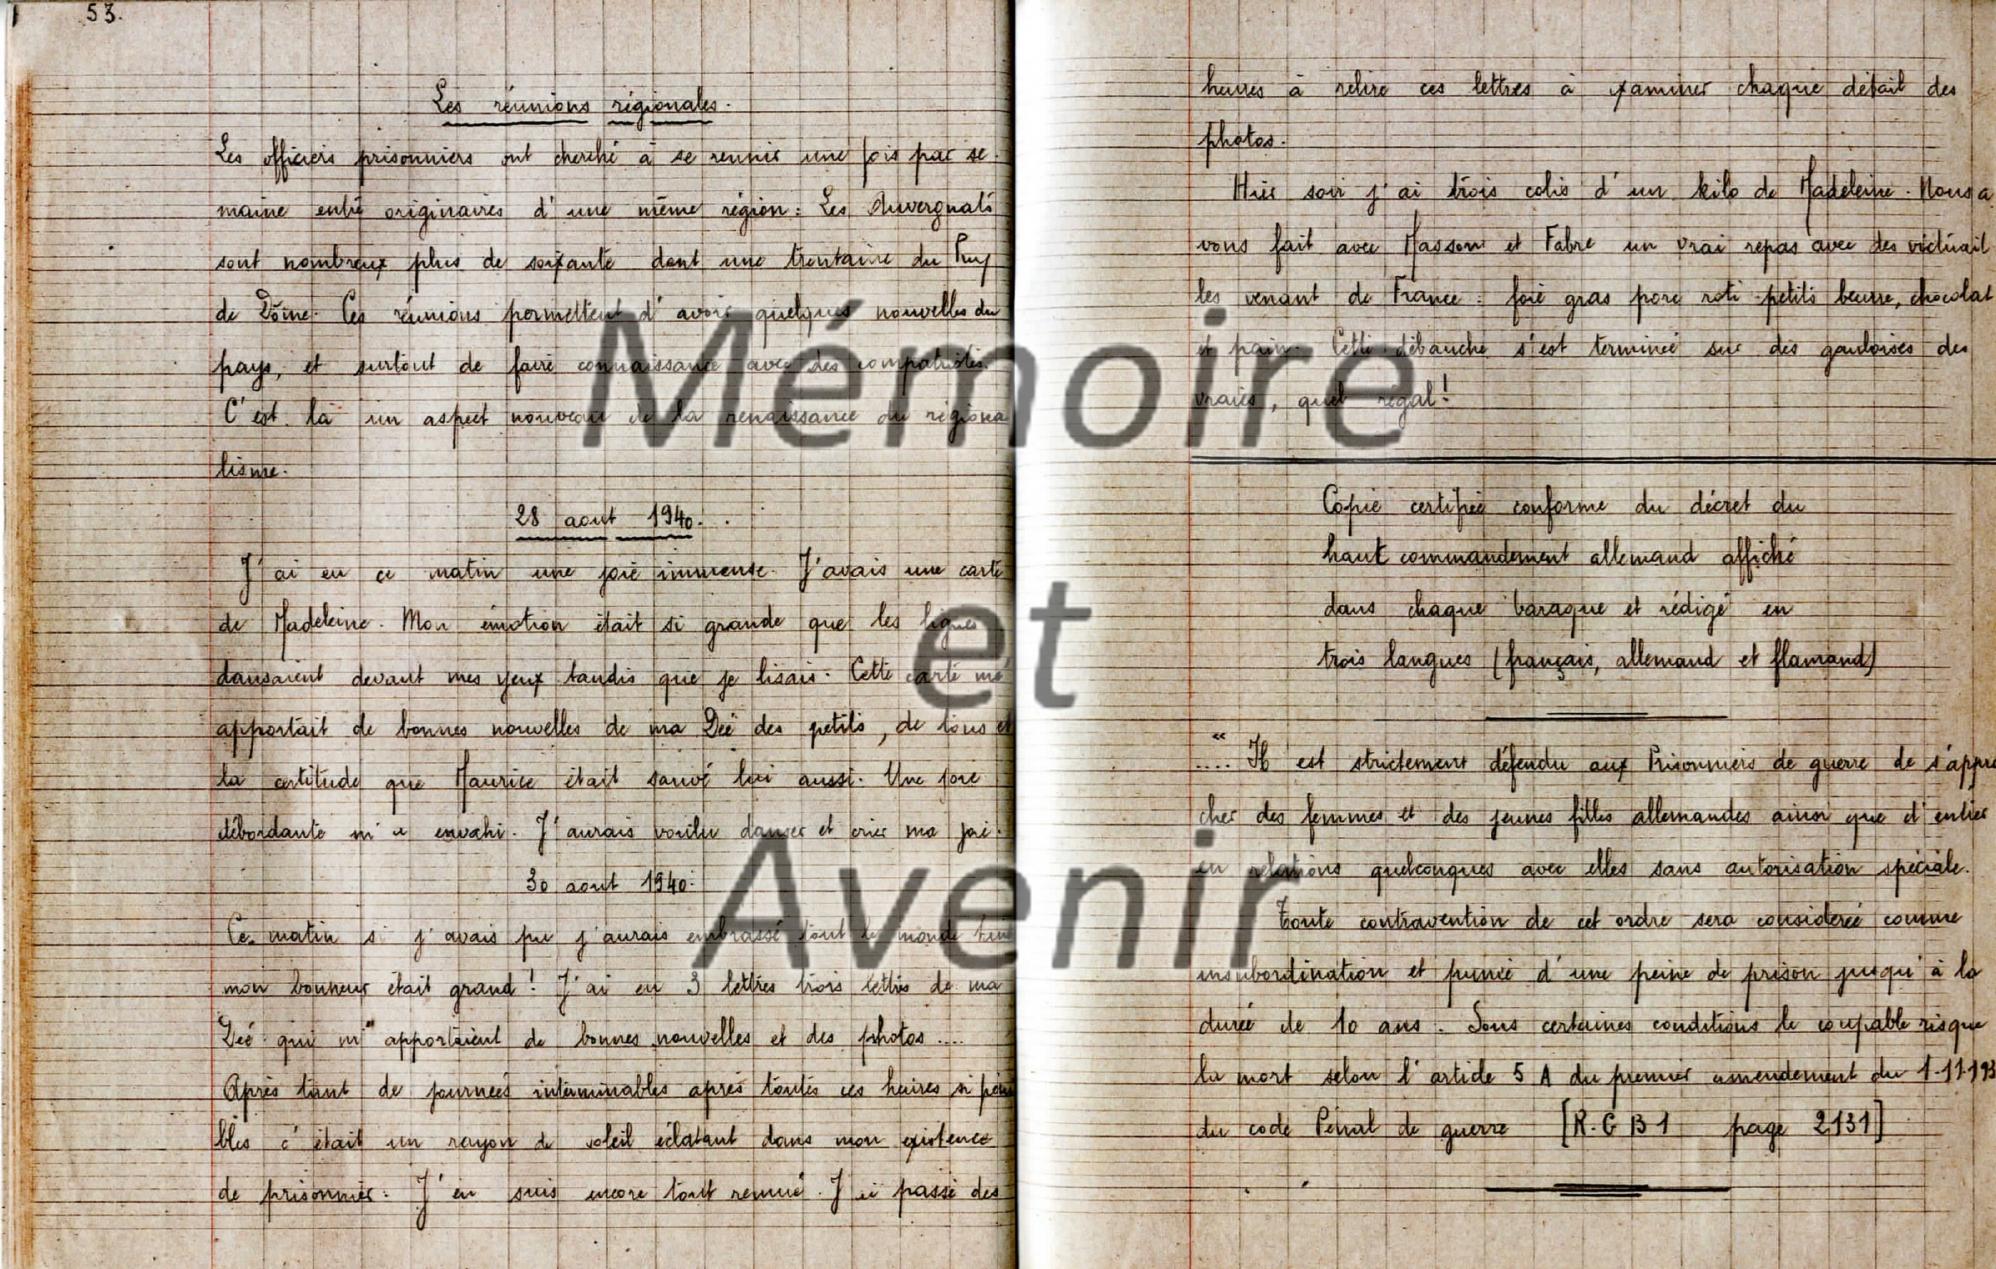 53.
Les réunions régionales.
Les officiers prisonniers ont cherché à se reunir une fois par se-
maine entre originaires d'une même région : Les Auvergnats
sont nombreux plus de soixante dont une trentaine du Puy
de Dôme. Ces réunions permettent d'avoir quelques nouvelles du
pays, et surtout de faire connaissance avec des compatriotes.
C'est là un aspect nouveau de la renaissance du régiona
lisme.
28 aout 1940.
J'ai eu ce matin une joie immense. J'avais une carte
de Madeleine. Mon émotion était si grande que les lignes
dansaient devant mes yeux tandis que je lisais. Cette carte me
apportait de bonnes nouvelles de ma Dée des petits, de tous et
la certitude que Maurice était sauvé lui aussi. Une joie
débordante m'a envahi. J'aurais voulu danser et crier ma joie.
30 aout 1940.
Ce matin si j'avais pu j'aurais embrassé tout le monde tant
mon bonheur était grand ! J'ai eu 3 lettres trois lettres de ma
Dée qui m'apportaient de bonnes nouvelles et des photos ....
Après tant de journées interminables après toutes ces heures si péni
bles c'était un rayon de soleil éclatant dans mon existence
de prisonnier. J'en suis encore tout remué. J'ai passé des
heures à relire ces lettres à examiner chaque détail des
photos.
Hier soir j'ai trois colis d'un kilo de Madeleine. Nous a
vons fait avec Masson et Fabre un vrai repas avec des victuail
les venant de France : foie gras porc roti petits beurre, chocolat
et pain. Cette débauche s'est terminée sur des gauloises des
vraies, quel régal !
Copie certifiée conforme du décret du
haut commandement allemand affiché
dans chaque baraque et rédigé en
trois langues (français, allemand et flamand)
".... Il est strictement défendu aux Prisonniers de guerre de s'appro
cher des femmes et des jeunes filles allemandes ainsi que d'entrer
en relations quelconques avec elles sans autorisation spéciale.
Toute contravention de cet ordre sera considerée comme
insubordination et punie d'une peine de prison jusqu'à la
durée de 10 ans. Sous certaines conditions le coupable risque
la mort selon l'article 5 A du premier amendement du 1-11-193
du code Pénal de guerre [R.G B 1 page 2131]
Mémoire
et
Avenir